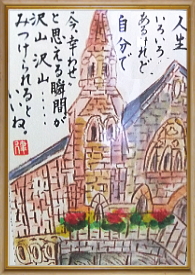 人生
いろいろ
あるけれど
自分で
今、幸せ
と思える瞬間が
沢山沢山…
みつけられると
いいね。